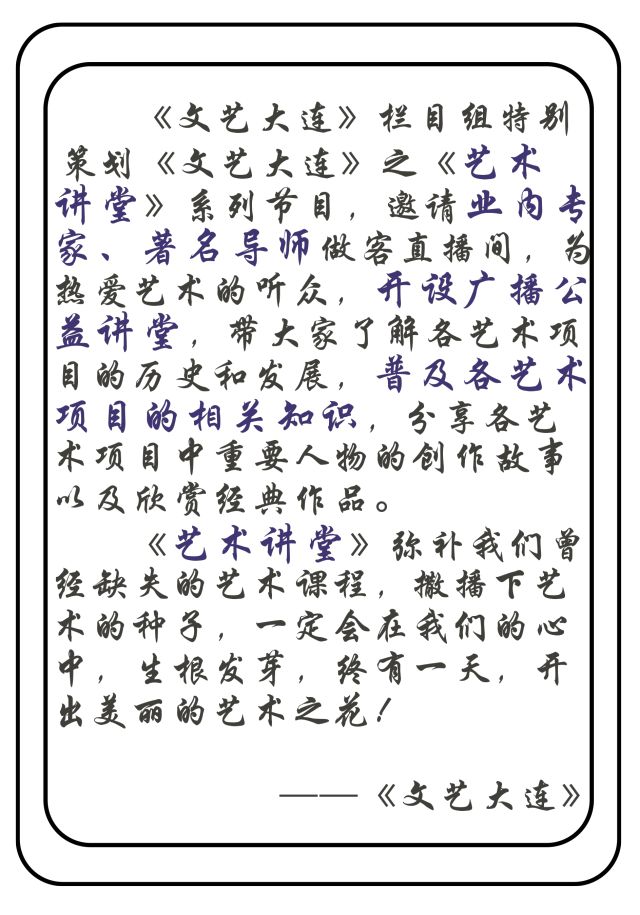 《文艺大连》栏目组特别
策划《文艺大连》之《艺术
讲堂》系列节目，邀请业内专
家、著名导师做客直播间，为
热爱艺术的听众，开设广播公
益讲堂，带大家了解各艺术项
目的历史和发展，普及各艺术
项目的相关知识，分享各艺
术项目中重要人物的创作故事
以及欣赏经典作品。
《艺术讲堂》弥补我们曾
经缺失的艺术课程，撒播下艺
术的种子，一定会在我们的心
中，生根发芽，终有一天，开
出美丽的艺术之花！
——《文艺大连》